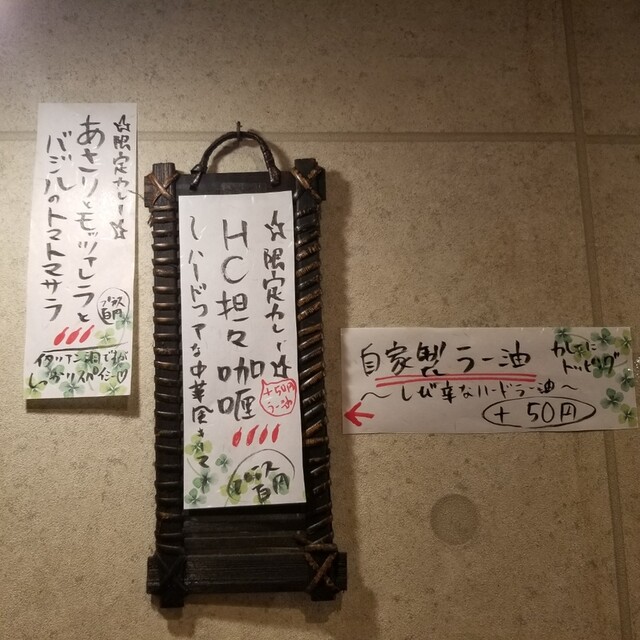 ☆限定カレー☆
あさりとモッツァレラと
バジルのトマトマサラ
イタリアン風ですが
しっかりスパイシー♡
☆限定カレー☆
HC担々咖喱
～ハードコアな中華風
+50円
ラー油
百円
自家製ラー油
カレーに
トッピング
～しび辛なハードラー油～
+50円